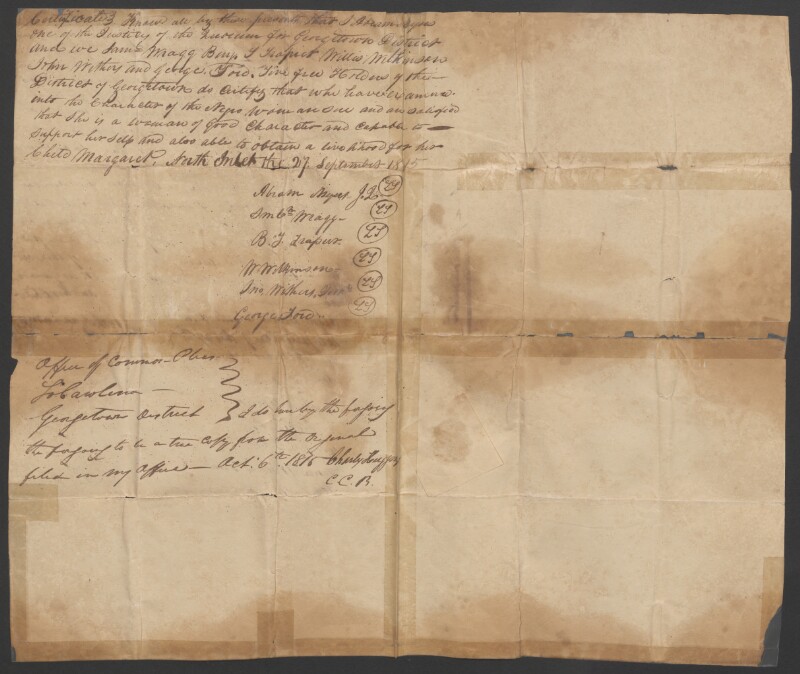 Certificate} Know all by these presents that I Abram Myers
one of the Justices of the Quorum for Georgetown District
and we Saml Wragg Benj. F Trapier Willm Wilkinson
John Withers and George Ford, Five free Holders of the
District of Georgetown do Certify that we have examined
into the Character of the Negro Woman and am satisfied
that She is a woman of Good Character and Capable to
Support her Self and also able to obtain a livelihood for her
Child Margaret, North Inlet the 27 September 1815
Abram Myers J.Q. LS
Wragg LS
B. F. Trapier LS
W. Wilkinson LS
Jno Withers, LS
George Ford LS
Office of Common Pleas
So Carolina
Georgetown District } I do hereby
the to be a true Copy from the Original
filed in my Office Oct. 6th 1815